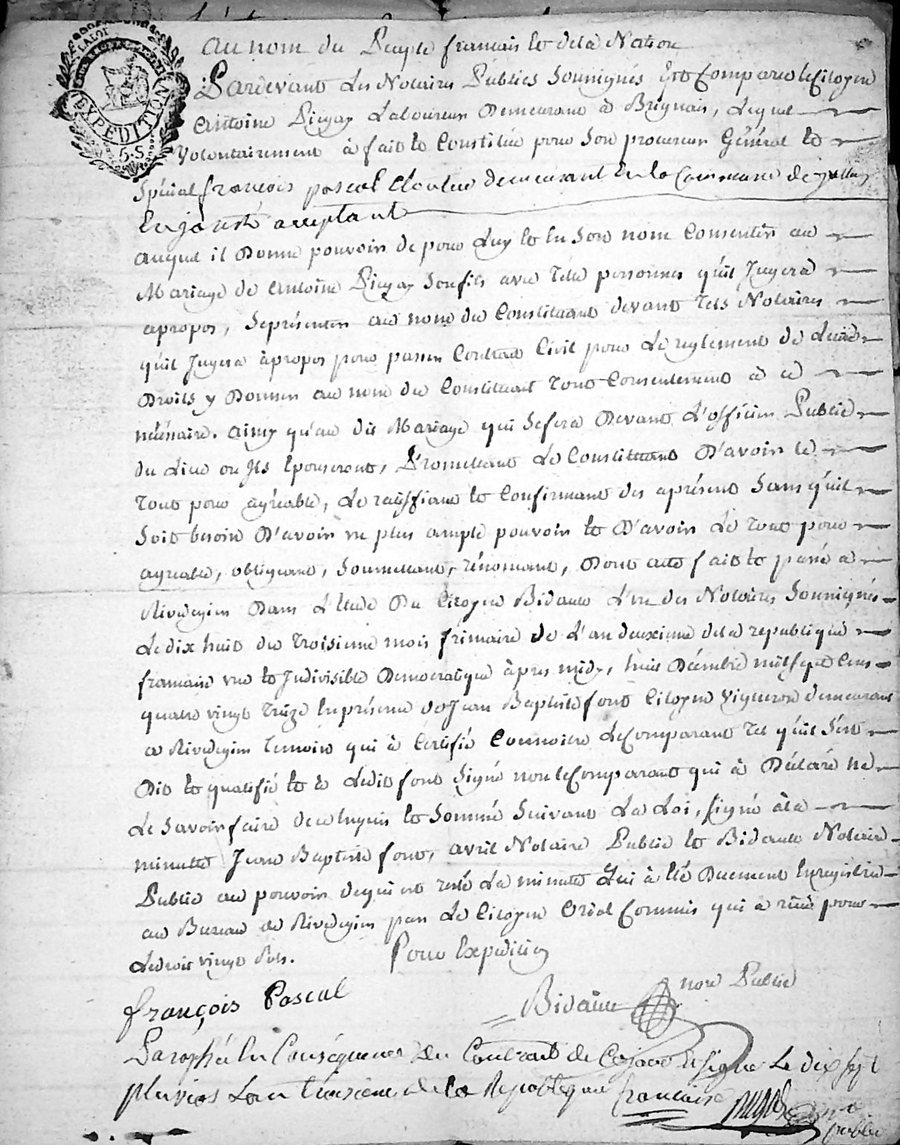 LA LOI
EXPEDITION
5.S
au nom du Peuple francais et dela Nation
Pardevant les Notaires Publics Soussignés Est Comparu le Citoyen
Antoine Laboureur Demeurant à Brignais, Lequel
Volontairement à fait et Constitué pour Son procureur Général et
Spécial françois pascal demeurant en la Commune de
acceptant
auquel il Donne pouvoir de pour Luy et En Son nom Consentir au
Mariage de Antoine Son fils avec Telle personne qu'il Jugera
apropos, Représenter au nom du Constituant devant Tels Notaires
qu'il Jugera àpropos pour passer Contrat Civil pour Le reglement de Leurs
Droits y Donner au nom du Constituant Tout Consentement à ce
nécésaire. ainsy qu'au dit Mariage qui Sefera Devant L'officier Public
du Lieu ou Ils Epouseront, Promettant Le Constituant D'avoir le
Tout pour agréable, Le ratiffiant et Confirmant des aprésent Sans qu'il
Soit besoin D'avoir un plus ample pouvoir et D'avoir Le Tout pour
agréable, obligeant, Soumettant, rénonçant, Dont acte fait et passé a
Rivedegier Dans L'Etude Du Citoyen Bidault L'un des Notaires Soussignés
Le dix huit du Troisieme mois frimaire de L'an deuxieme dela republique
francaise une et Indivisible Democratique àpres midy, huit Décembre mil Sept Cens
quatre vingt Treize En présence de Jean Baptiste font Citoyen Vigneron demeurant
a Rivedegier Temoin qui à Certifié Connoitre Le Comparant Tel qu'il S'est
Dit et qualifié et a Ledit font Signé non le Comparant qui à Déclaré ne
Le Savoir faire de ce Enquis et Sommé Suivant La Loi, Signé àla
minutte Jean Baptiste font, avril Notaire Public et Bidault Notaire
Public au pouvoir dequi est resté La minute qui à été Duement Enregistrée
au Bureau de Rivedegier par Le Citoyen Commis qui à reçu pour
Ledroit vingt Sols.
Pour Expédition
françois Pascal
Bidault
not Public
Paraphé En Conséquence du Contrat de Cejourd'huy Signé Le dix Sept
pluvios Lan troisieme de La Republique francaise
public